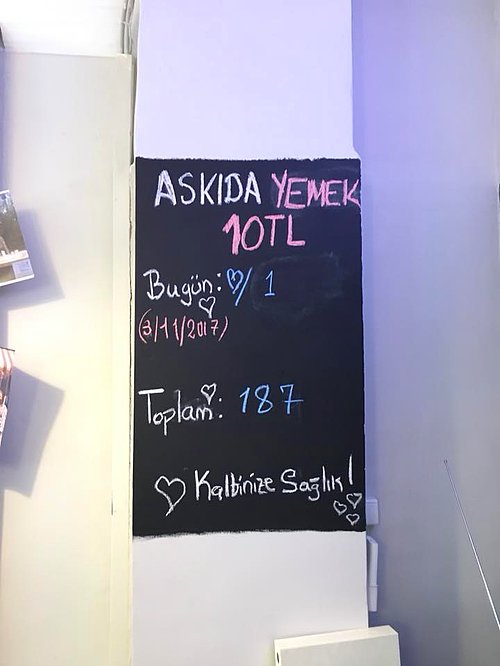 ASKIDA YEMEK
10TL
Bugün: / 1
(3/11/2017)
Toplam: 187
Kalbinize Sağlık!